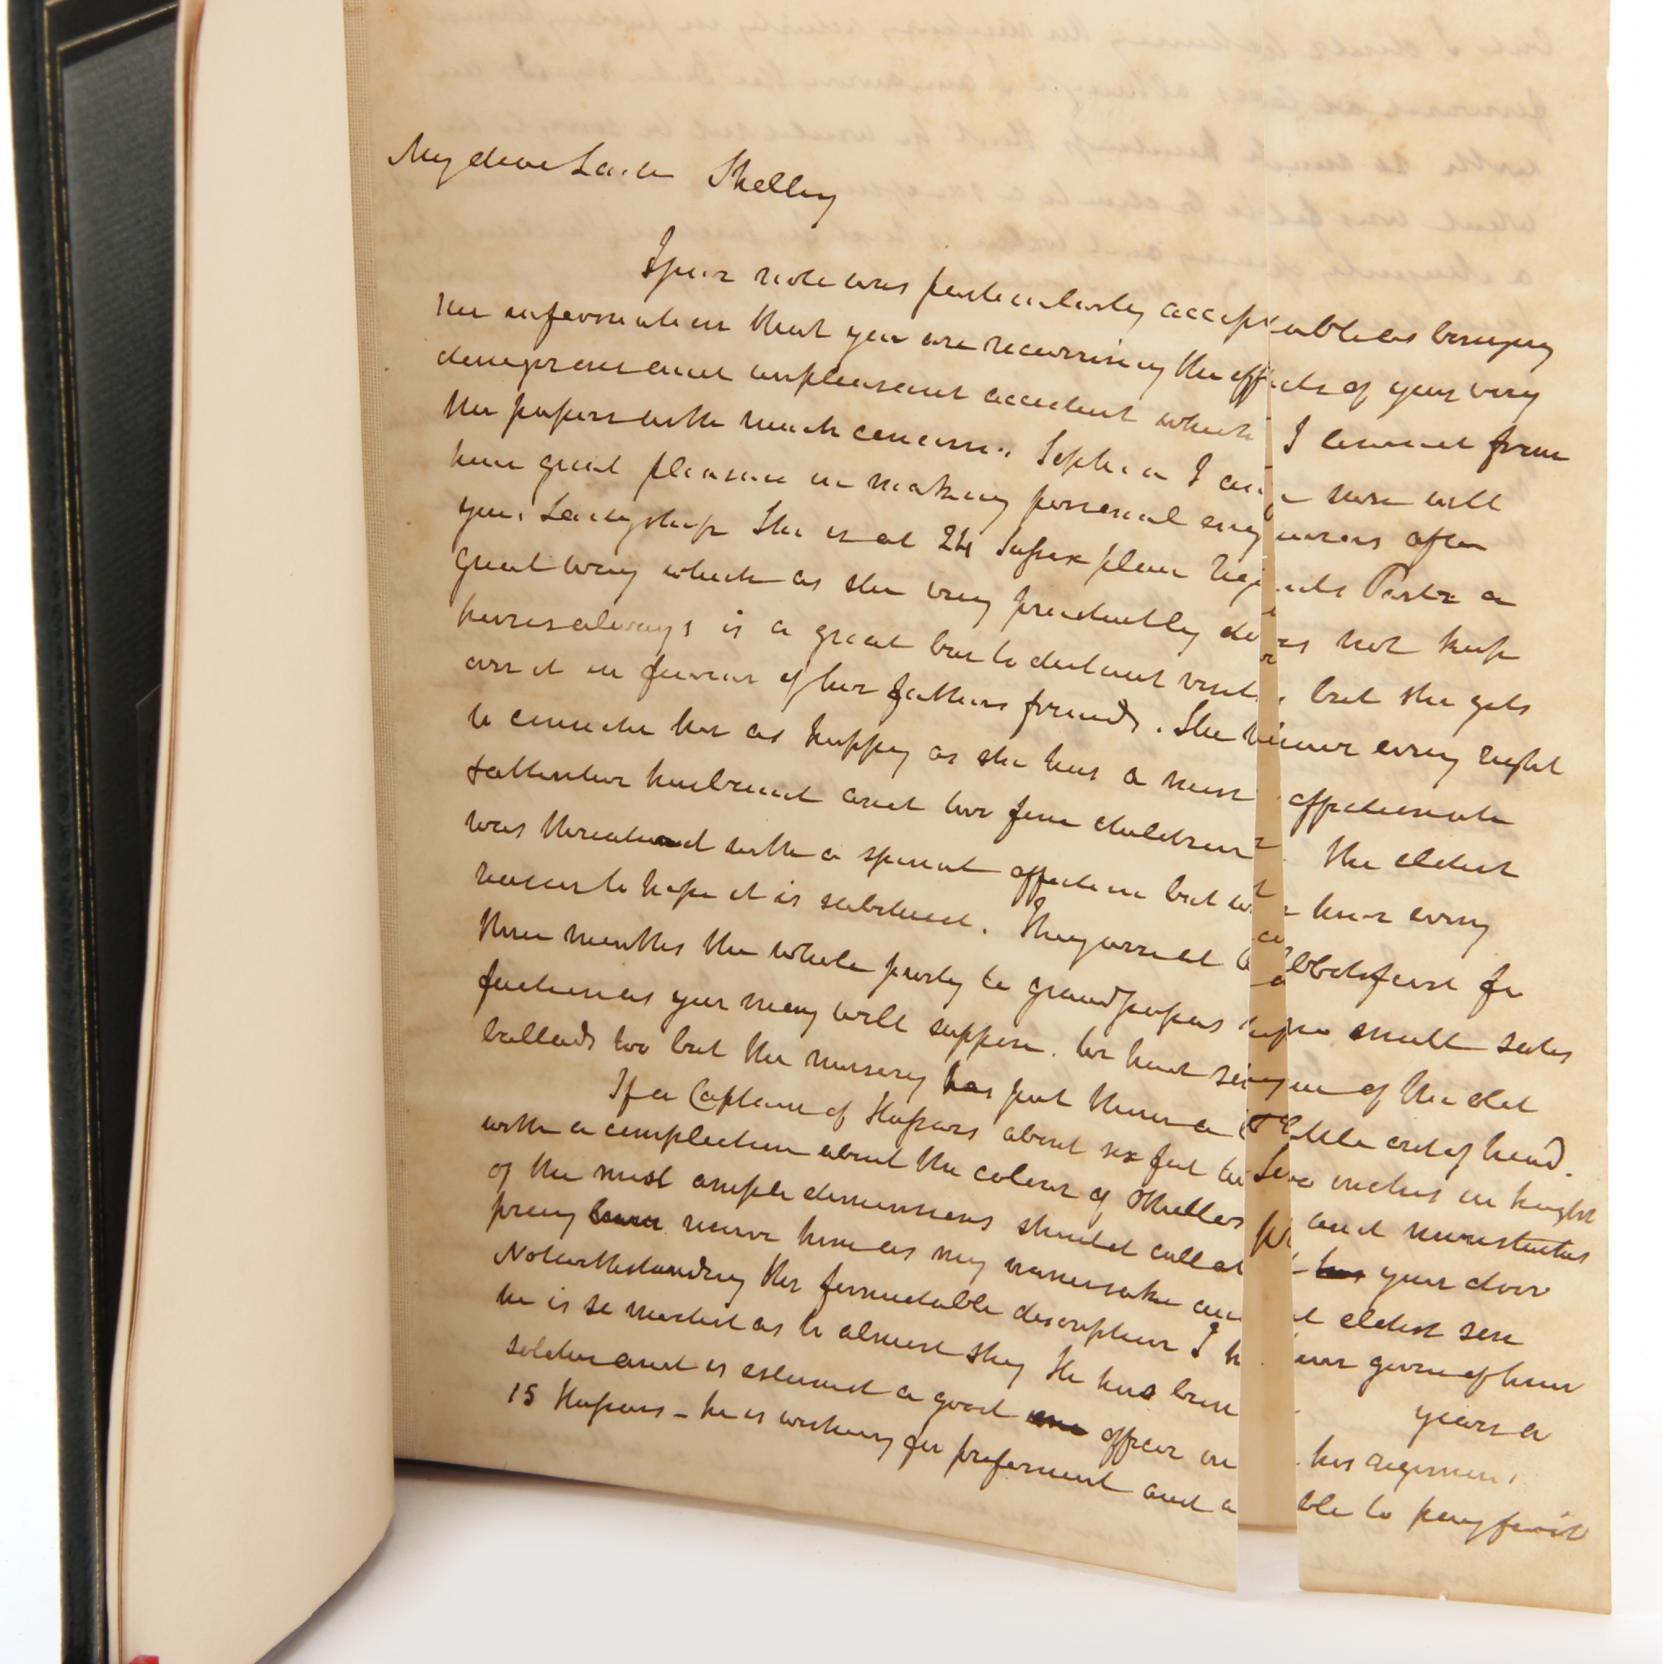 My dear Lady Shelley
Your note was particularly acceptable as bringing
the information that you are recovering the effects of your very
dangerous and unpleasant accident which I learned from
the papers with much concern. Sophia I am sure will
have great pleasure in making personal enquiries after
your Ladyship She is at 24 Sussex place Regents Park a
great way which as she very prudently does not keep
horses always is a great bar to distant visits, but she gets
over it in favour of her fathers friends. She have every right
to consider her as happy as she has a most affectionate
& attentive husband and two fine children. The eldest
was threatend with a spinal affection but we have every
reason to hope it is subdued. They were at Abbotsford for
three months the whole party to grandpapas no small satis
faction as you may well suppose. We had some of the old
ballads too but the nursery has put them a little out of head.
If a Captain of Hussars about six feet two inches in height
with a complection about the colour of Othellos and mustachios
of the most ample dimensions should call at your door
pray receive him as my namesake and eldest son
Notwithstanding the formidable description I have given of him
he is so modest as to almost shy He has been years a
soldier and is esteemed a good officer in his regiment
15 Hussars - he is wishing for preferment and able to pay for it